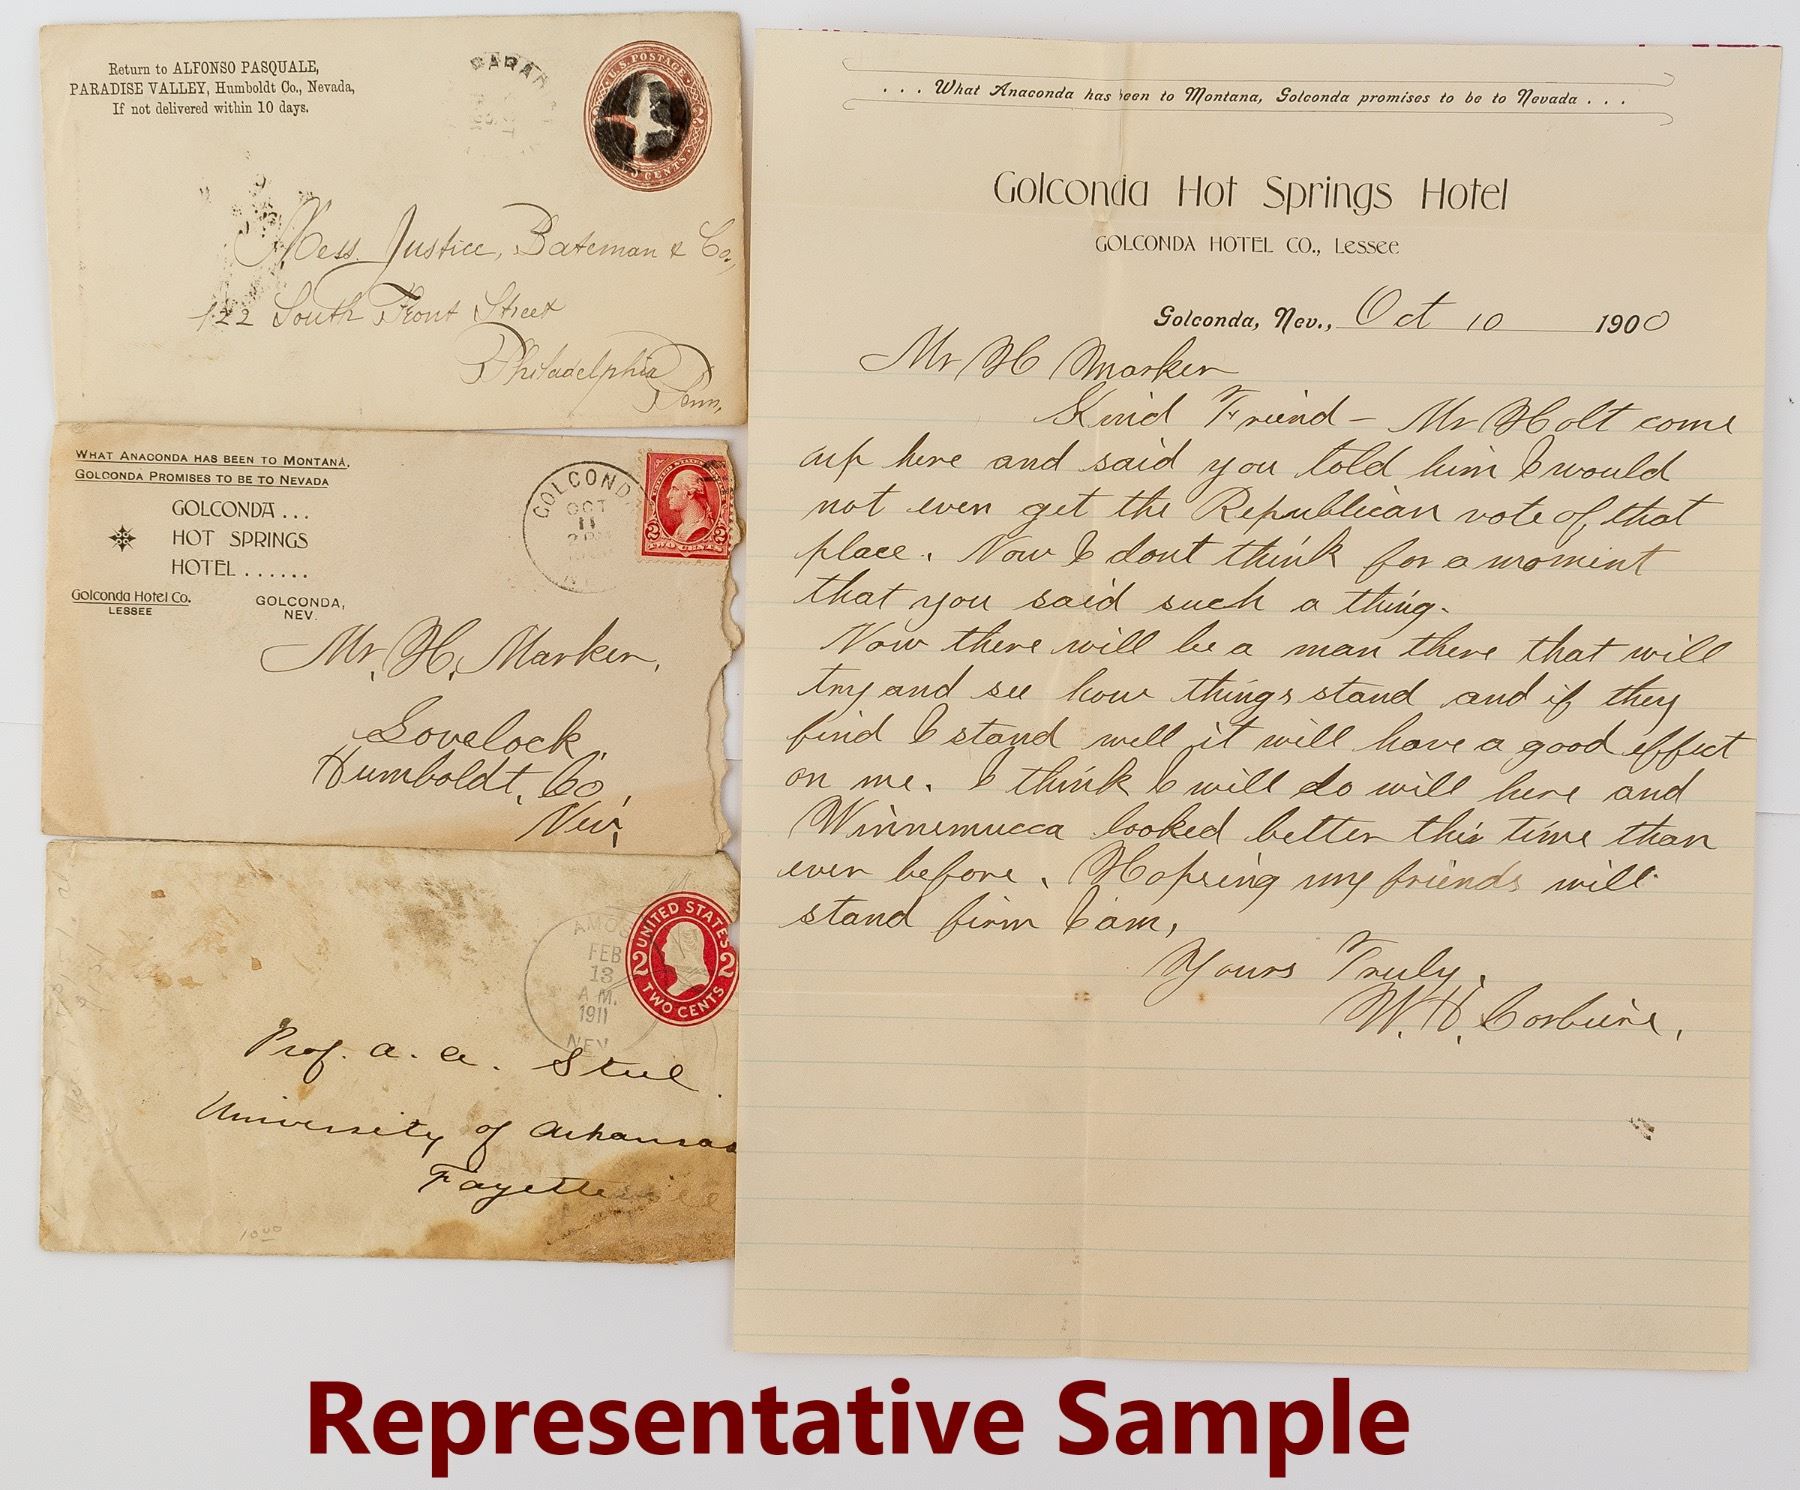 Return to ALFONSO PASQUALE,
PARADISE VALLEY, Humboldt Co., Nevada,
If not delivered within 10 days.
U.S. POSTAGE
CENTS
Mess Justice, Bateman & Co,
122 South Front Street
Philadelphia
Penn,
WHAT ANACONDA HAS BEEN TO MONTANA,
GOLCONDA PROMISES TO BE TO NEVADA
GOLCONDA ...
HOT SPRINGS
HOTEL ......
Golconda Hotel Co.
LESSEE
GOLCONDA,
NEV.
GOLCONDA
OCT
11
2
TWO CENTS
2
Mr. H. Marker,
Lovelock,
Humboldt, Co,
Nev,
AMOS
FEB
13
A.M.
1911
NEV
UNITED STATES
2 2
TWO CENTS
Prof. A. A. Steel
University of Arkansas
Fayetteville
10 00
... What Anaconda has been to Montana, Golconda promises to be to Nevada ...
Golconda Hot Springs Hotel
GOLCONDA HOTEL CO., Lessee
Golconda, Nev., Oct 10 1900
Mr H Marker
Kind Friend - Mr Holt come
up here and said you told him I would
not even get the Republican vote of that
place. Now I dont think for a moment
that you said such a thing.
Now there will be a man there that will
try and see how things stand and if they
find I stand well it will have a good effect
on me. I think I will do will here and
Winnemucca looked better this time than
ever before. Hopeing my friends will
stand firm I am,
Yours Truly.
W. H.
Representative Sample